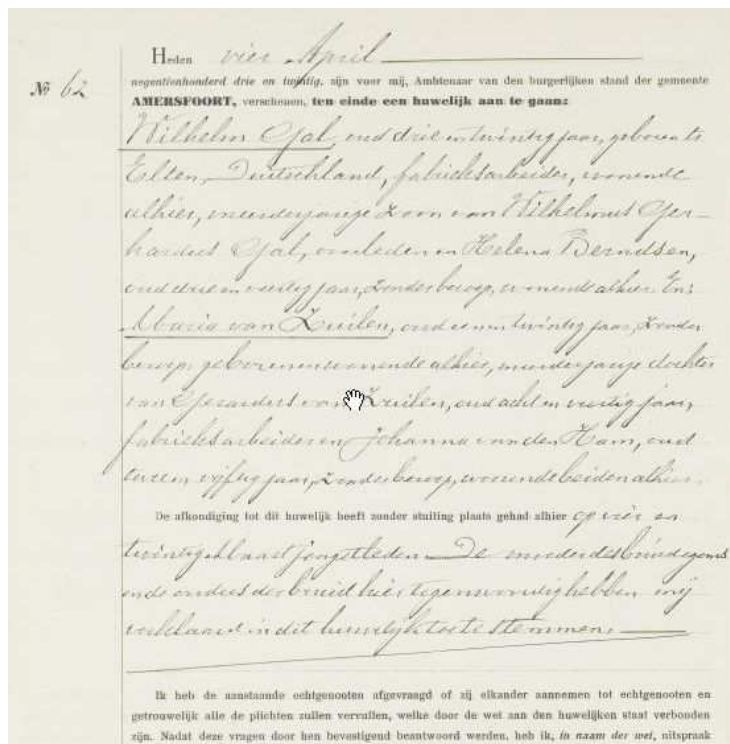 Heden vier April
No 62
negentienhonderd drie en twintig, zijn voor mij, Ambtenaar van den burgerlijken stand der gemeente
AMERSFOORT, verschenen, ten einde een huwelijk aan te gaan:
Wilhelm Gal, oud drie en twintig jaar, geboren te
Elten, Duitschland, fabrieksarbeider, wonende
alhier, meerderjarige zoon van Wilhelmus Ger-
hardus Gal, overleden en Helena Berndsen,
oud drie en veertig jaar, zonder beroep, wonende alhier. En:
Maria van Zuilen, oud een en twintig jaar, zonder
beroep, geboren en wonende alhier, minderjarige dochter
van Gerardus van Zuilen, oud acht en veertig jaar,
fabrieksarbeider en Johanna van den Ham, oud
twee en vijftig jaar, zonder beroep, wonende beiden alhier.
De afkondiging tot dit huwelijk heeft zonder stuiting plaats gehad alhier op vier en
twintig Maart jongstleden. De moeder des bruidegoms
en de ouders der bruid hier tegenwoordig hebben mij
verklaard in dit huwelijk toe te stemmen.
Ik heb de aanstaande echtgenooten afgevraagd of zij elkander aannemen tot echtgenooten en
getrouwelijk alle de plichten zullen vervullen, welke door de wet aan den huwelijken staat verbonden
zijn. Nadat deze vragen door hen bevestigend beantwoord werden, heb ik, in naam der wet, uitspraak